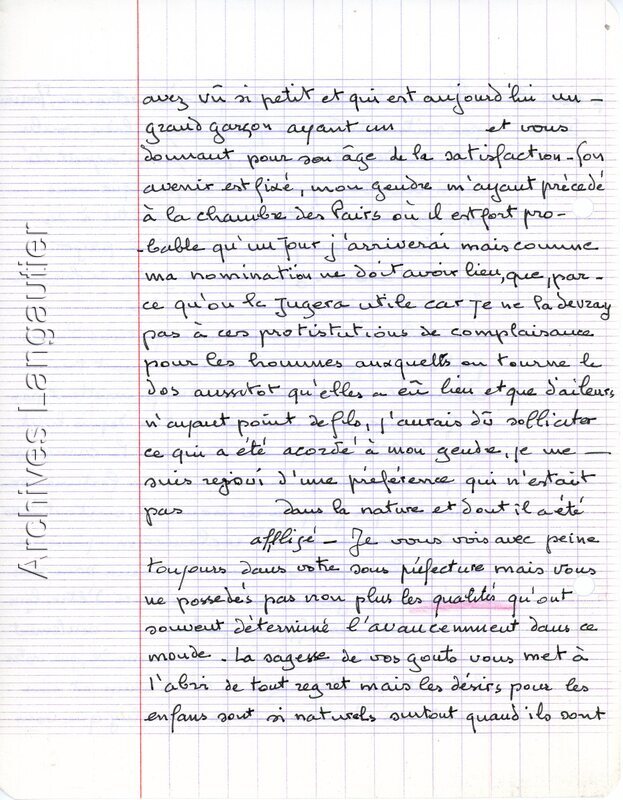 avez vû si petit et qui est aujourd'hui un -
grand garçon ayant un et vous
donnant pour son âge de la satisfaction - Son
avenir est fixé, mon gendre m'ayant précédé
à la chambre des Pairs où il est fort pro-
-bable qu'un jour j'arriverai mais comme
ma nomination ne doit avoir lieu, que, par-
ce qu'on la jugera utile car je ne la devray
pas à ces protistutions de complaisance
pour les hommes auxquells on tourne le
dos aussitot qu'elles a eû lieu et que d'aileurs
n'ayant point de fils, j'aurais dû solliciter
ce qui a été acordé à mon gendre, je me -
suis rejoui d'une préférence qui n'estait
pas dans la nature et dont il a été
affligé - Je vous vois avec peine
toujours dans votre sous préfecture mais vous
ne possedés pas non plus les qualités qu'ont
souvent déterminé l'avancemment dans ce
monde. La sagesse de vos gouts vous met à
l'abri de tout regret mais les désirs pour les
enfans sont si naturels surtout quand ils sont
Archives Langautier